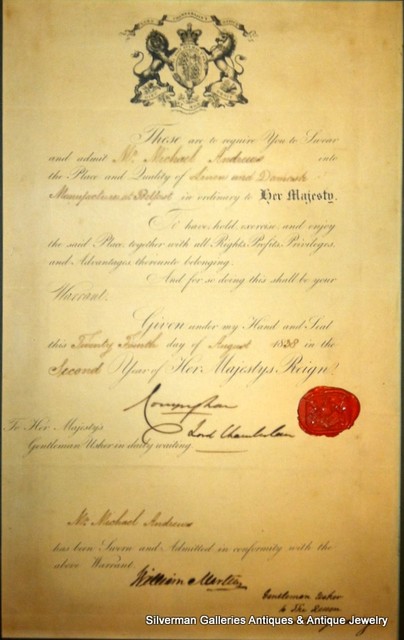 These are to require You to Swear
and admit Mr. Michael Andrews into
the Place and Quality of Linen and Damask
Manufacturer at Belfast in ordinary to Her Majesty.
To have, hold, exercise and enjoy
the said Place, together with all Rights, Profits, Privileges,
and Advantages, thereunto belonging.
And for so doing this shall be your
Warrant.
Given under my Hand and Seal
this Twenty Fourth day of August 1838 in the
Second Year of Her Majesty's Reign.
Conyngham
Lord Chamberlain
To Her Majesty's
Gentleman Usher in daily waiting.
Mr. Michael Andrews
has been Sworn and Admitted in conformity with the
above Warrant.
William Martins
Gentleman Usher
to the Queen
Silverman Galleries Antiques & Antique Jewelry